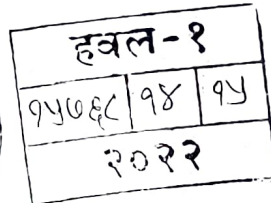 हवल-१
१५७६८ १४ १५
२०२२